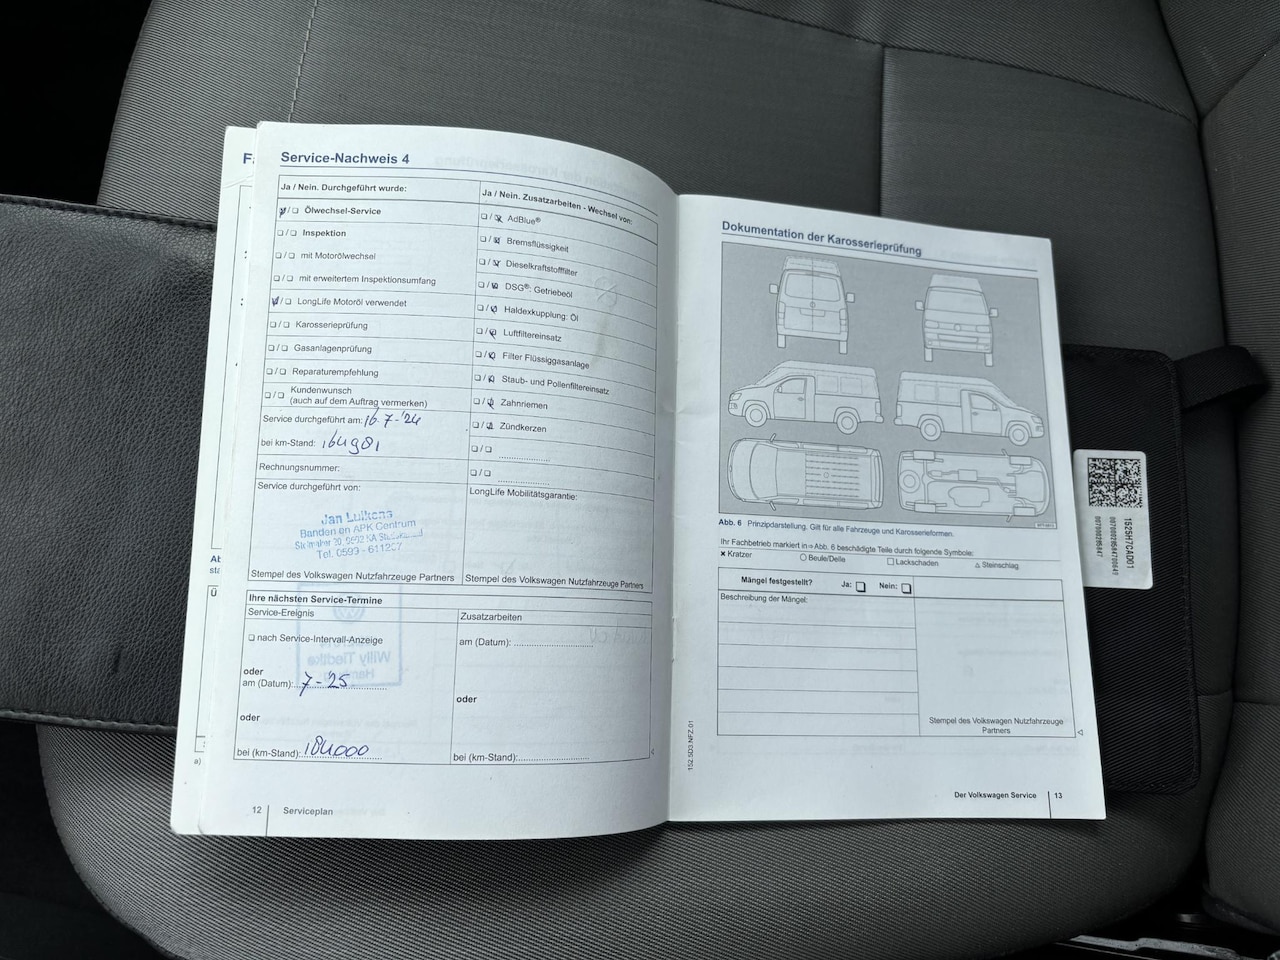 Fa
Service-Nachweis 4
Ja / Nein. Durchgeführt wurde:
Ölwechsel-Service
Inspektion
mit Motorölwechsel
mit erweitertem Inspektionsumfang
LongLife Motoröl verwendet
Karosserieprüfung
Gasanlagenprüfung
Reparaturempfehlung
Kundenwunsch
(auch auf dem Auftrag vermerken)
Service durchgeführt am: 16-7-'24
bei km-Stand: 164981
Rechnungsnummer:
Service durchgeführt von:
Jan Luikens
Banden en APK Centrum
Tel. 0599 - 611257
Stempel des Volkswagen Nutzfahrzeuge Partners
Ja / Nein. Zusatzarbeiten - Wechsel von:
AdBlue®
Bremsflüssigkeit
Dieselkraftstofffilter
DSG®: Getriebeöl
Haldexkupplung: Öl
Luftfiltereinsatz
Filter Flüssiggasanlage
Staub- und Pollenfiltereinsatz
Zahnriemen
Zündkerzen
LongLife Mobilitätsgarantie:
Stempel des Volkswagen Nutzfahrzeuge Partners
Ihre nächsten Service-Termine
Service-Ereignis
nach Service-Intervall-Anzeige
oder
am (Datum): 7-'25
oder
bei (km-Stand): 184000
Zusatzarbeiten
am (Datum):
oder
bei (km-Stand):
12 Serviceplan
Ab
sta
Ü
a)
Dokumentation der Karosserieprüfung
Abb. 6 Prinzipdarstellung. Gilt für alle Fahrzeuge und Karosserieformen.
Ihr Fachbetrieb markiert in ⇒ Abb. 6 beschädigte Teile durch folgende Symbole:
Kratzer Beule/Delle Lackschaden Steinschlag
Mängel festgestellt? Ja: Nein:
Beschreibung der Mängel:
Stempel des Volkswagen Nutzfahrzeuge
Partners
152.5D3.NFZ.01
Der Volkswagen Service 13
1525H7CAD01